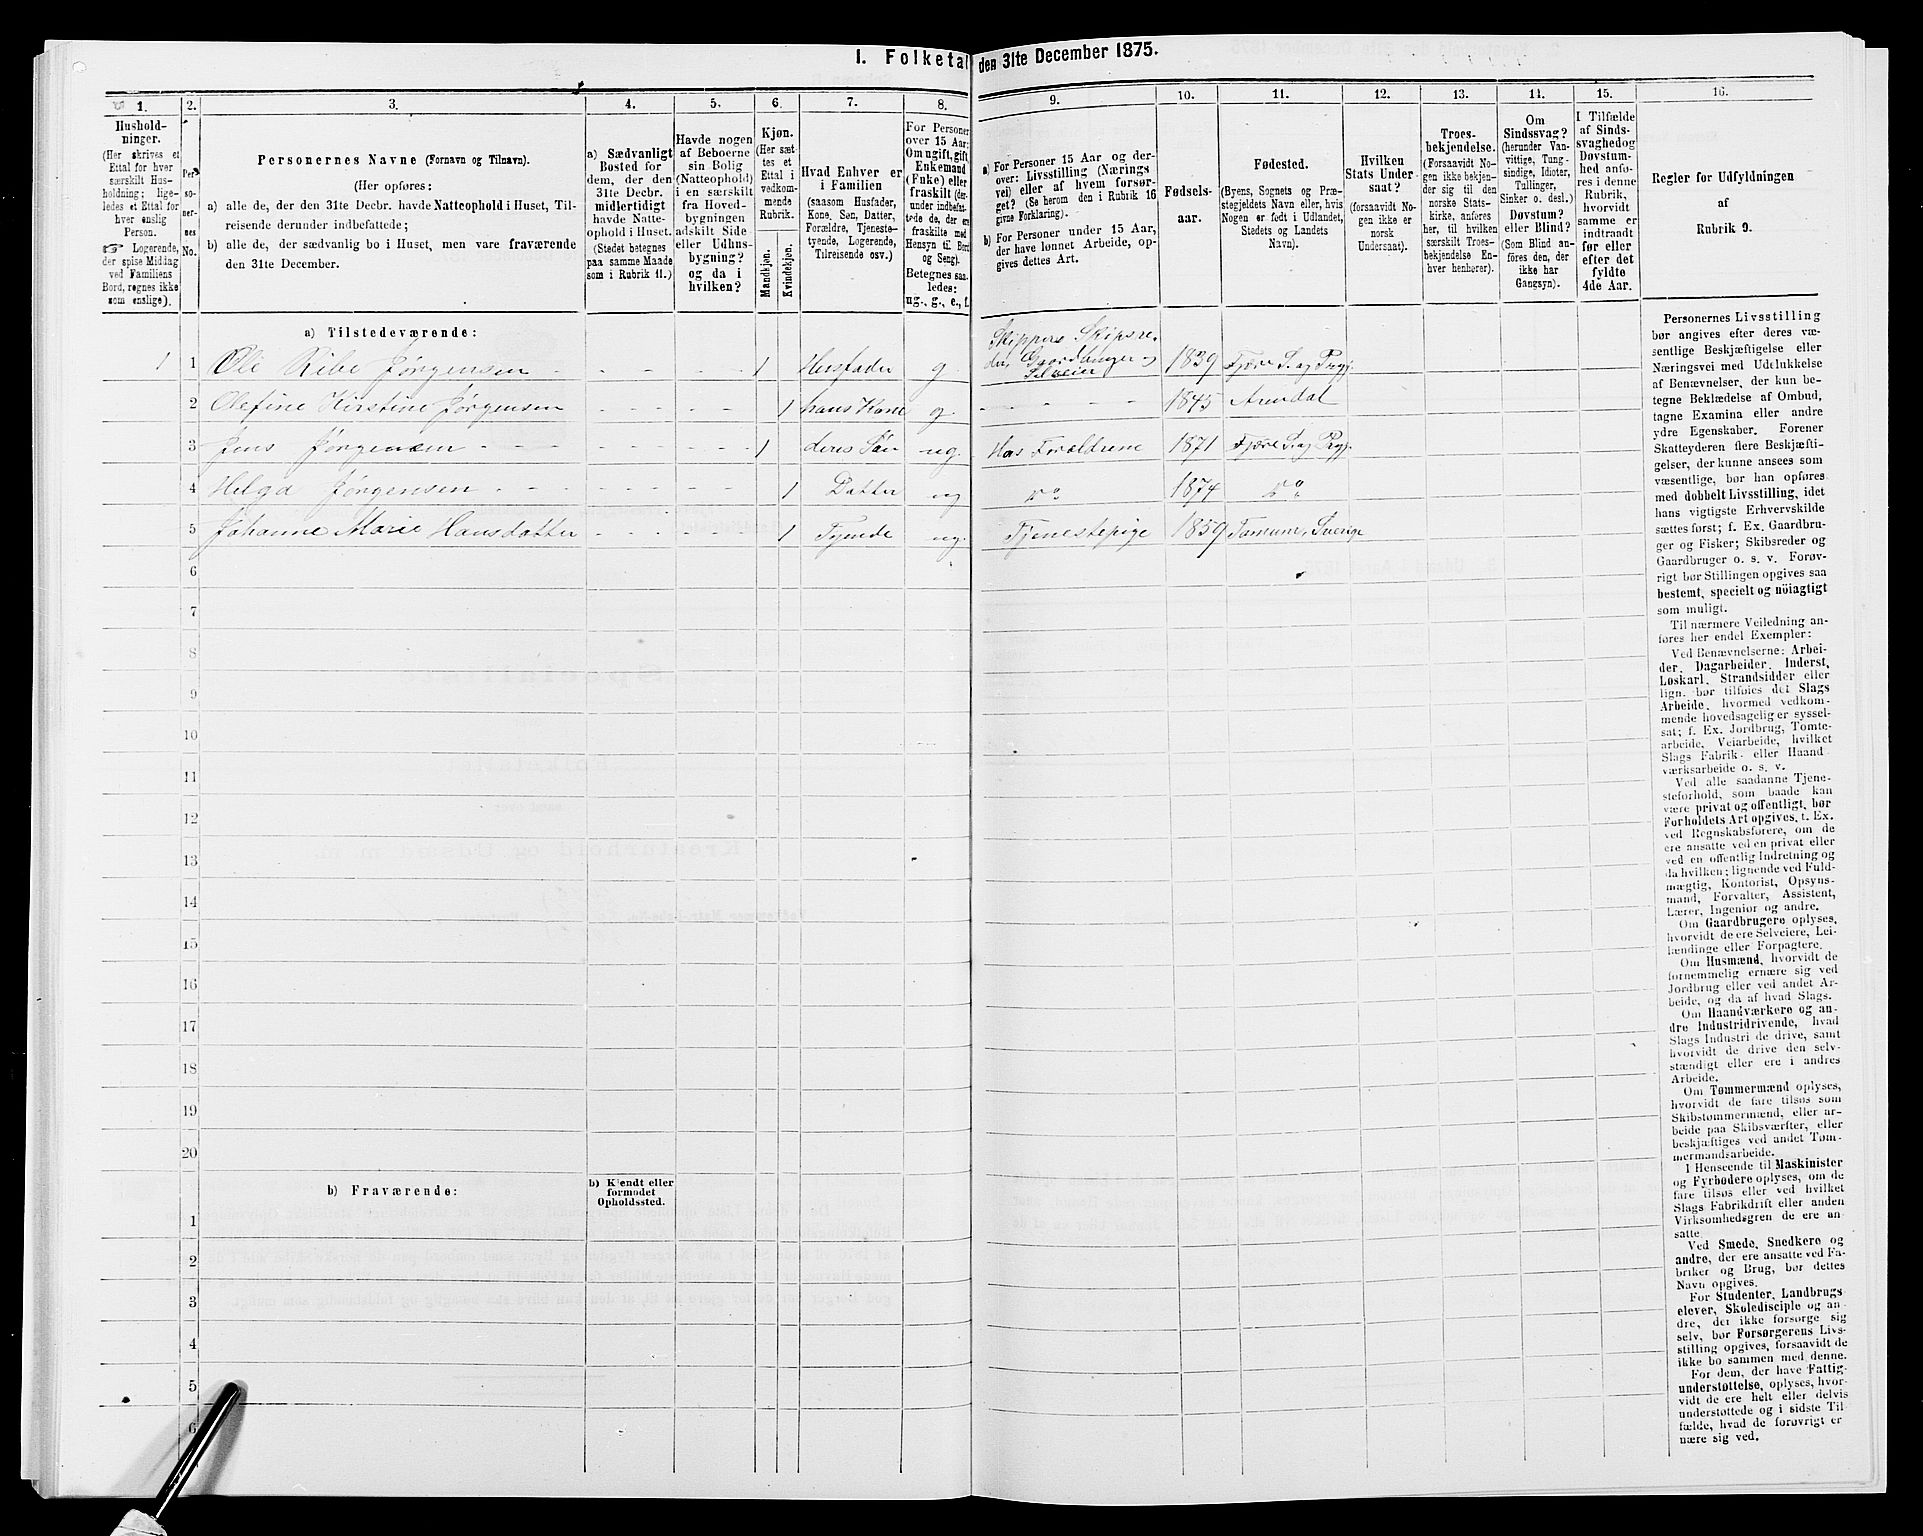 I. Folketal den 31te December 1875.
1. 2. 3. 4. 5. 6. 7. 8. 9. 10. 11. 12. 13. 14. 15. 16.
Hushold-
ninger.
(Her skrives et
Ettal for hver
særskilt Hus-
holdning; lige-
ledes et Ettal for
hver enslig
Person.
☞ Logerende,
der spise Middag
ved Familiens
Bord, regnes ikke
som enslige).
Per-
so-
ner-
nes
No.
Personernes Navne (Fornavn og Tilnavn).
(Her opføres:
a) alle de, der den 31te Decbr. havde Natteophold i Huset, Til-
reisende derunder indbefattede;
b) alle de, der sædvanlig bo i Huset, men vare fraværende
den 31te December.
a) Sædvanligt
Bosted for
dem, der den
31te Decbr.
midlertidigt
havde Natte-
ophold i Huset.
(Stedet betegnes
paa samme Maade
som i Rubrik 11.)
Havde nogen
af Beboerne
sin Bolig
(Natteophold)
i en særskilt
fra Hoved-
bygningen
adskilt Side
eller Udhus-
bygning?
og da i
hvilken?
Kjøn.
(Her sæt-
tes et
Ettal i
vedkom-
mende
Rubrik.
Mandkjøn.
Kvindekjøn.
Hvad Enhver er
i Familien
(saasom Husfader,
Kone, Søn, Datter,
Forældre, Tjeneste-
tyende, Logerende,
Tilreisende osv.)
For Personer
over 15 Aar:
Om ugift, gift,
Enkemand
(Enke) eller
fraskilt (der-
under indbefat-
tede de, der ere
fraskilte med
Hensyn til Bord
og Seng).
Betegnes saa-
ledes:
ug., g., e., f.
a) For Personer 15 Aar og der-
over: Livsstilling (Nærings-
vei) eller af hvem forsør-
get? (Se herom den i Rubrik 16
givne Forklaring).
b) For Personer under 15 Aar,
der have lønnet Arbeide, op-
gives dettes Art.
Fødsels-
aar.
Fødested.
(Byens, Sognets og Præ-
stegjeldets Navn eller, hvis
Nogen er født i Udlandet,
Stedets og Landets
Navn).
Hvilken
Stats Under-
saat?
(forsaavidt No-
gen ikke er
norsk
Undersaat).
Troes-
bekjendelse.
(Forsaavidt No-
gen ikke bekjen-
der sig til den
norske Stats-
kirke, anføres
her, til hvilken
særskilt Troes-
bekjendelse En-
hver henhører).
Om
Sindssvag?
(herunder Van-
vittige, Tung-
sindige, Idioter,
Tullinger,
Sinker o. desl.)
Døvstum?
eller Blind?
(Som Blind an-
føres den, der
ikke har
Gangsyn).
I Tilfælde
af Sinds-
svaghed og
Døvstum-
hed anfø-
res i denne
Rubrik,
hvorvidt
samme er
indtraadt
før eller
efter det
fyldte
4de Aar.
Regler for Udfyldningen
af
Rubrik 9.
a) Tilstedeværende:
1 1 Ole Ribe Jørgensen 1 Husfader g. Skipper, Skipsre-
der, Gaardbruger og
Selveier 1839 Fjære S. og Prgj.
2 Olefine Kirstine Jørgensen 1 hans Kone g. 1845 Arendal
3 Jens Jørgensen 1 deres Søn ug. Hos Forældrene 1871 Fjære S. og Prgj.
4 Helga Jørgensen 1 Datter ug do 1874 do
5 Johanne Marie Hansdatter 1 Tyende ug. Tjenestepige 1859 Tanum, Sverige
6
7
8
9
10
11
12
13
14
15
16
17
18
19
20
b) Fraværende:
b) Kjendt eller
formodet
Opholdssted.
1
2
3
4
5
6
Personernes Livsstilling
bør angives efter deres væ-
sentlige Beskjæftigelse eller
Næringsvei med Udelukkelse
af Benævnelser, der kun be-
tegne Beklædelse af Ombud,
tagne Examina eller andre
ydre Egenskaber. Forener
Skatteyderen flere Beskjæfti-
gelser, der kunne ansees som
væsentlige, bør han opføres
med dobbelt Livsstilling, idet
hans vigtigste Erhvervskilde
sættes først; f. Ex. Gaardbru-
ger og Fisker; Skibsreder og
Gaardbruger o. s. v. Forøv-
rigt bør Stillingen opgives saa
bestemt, specielt og nöiagtigt
som muligt.
Til nærmere Veiledning an-
føres her endel Exempler:
Ved Benævnelserne: Arbei-
der, Dagarbeider, Inderst,
Løskarl, Strandsidder eller
lign. bør tilføies det Slags
Arbeide, hvormed vedkom-
mende hovedsagelig er syssel-
sat; f. Ex. Jordbrug, Tomte-
arbeide, Veiarbeide, hvilket
Slags Fabrik- eller Haand-
værksarbeide o. s. v.
Ved alle saadanne Tjene-
steforhold, som baade kan
være privat og offentligt, bør
Forholdets Art opgives, t. Ex.
ved Regnskabsførere, om de
ere ansatte ved en privat eller
ved en offentlig Indretning og
da hvilken; lignende ved Fuld-
mægtig, Kontorist, Opsyns-
mand, Forvalter, Assistent,
Lærer, Ingeniør og andre.
Om Gaardbrugere oplyses,
hvorvidt de ere Selveiere, Lei-
lændinge eller Forpagtere.
Om Husmænd, hvorvidt de
fornemmelig ernære sig ved
Jordbrug eller ved andet Ar-
beide, og da af hvad Slags.
Om Haandværkere og an-
dre Industridrivende, hvad
Slags Industri de drive, samt
hvorvidt de drive den selv-
stændigt eller ere i andres
Arbeide.
Om Tømmermænd oplyses,
hvorvidt de fare tilsøs som
Skibstømmermænd, eller ar-
beide paa Skibsværfter, eller
beskjæftiges ved andet Tøm-
mermandsarbeide.
I Henseende til Maskinister
og Fyrbødere oplyses, om de
fare tilsøs eller ved hvilket
Slags Fabrikdrift eller anden
Virksomhedsgren de ere an-
satte.
Ved Smede, Snedkere og
andre, der ere ansatte ved Fa-
briker og Brug, bør dettes
Navn opgives.
For Studenter, Landbrugs-
elever, Skoledisciple og an-
dre, der ikke forsørge sig
selv, bør Forsørgerens Livs-
stilling opgives, forsaavidt de
ikke bo sammen med denne.
For dem, der have Fattig-
understøttelse, oplyses, hvor-
vidt de ere helt eller delvis
understøttede og i sidste Til-
fælde, hvad de forøvrigt er-
nære sig ved.